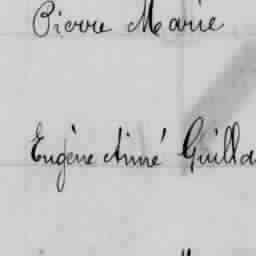 Pierre Marie
Eugène Aimé Guilla